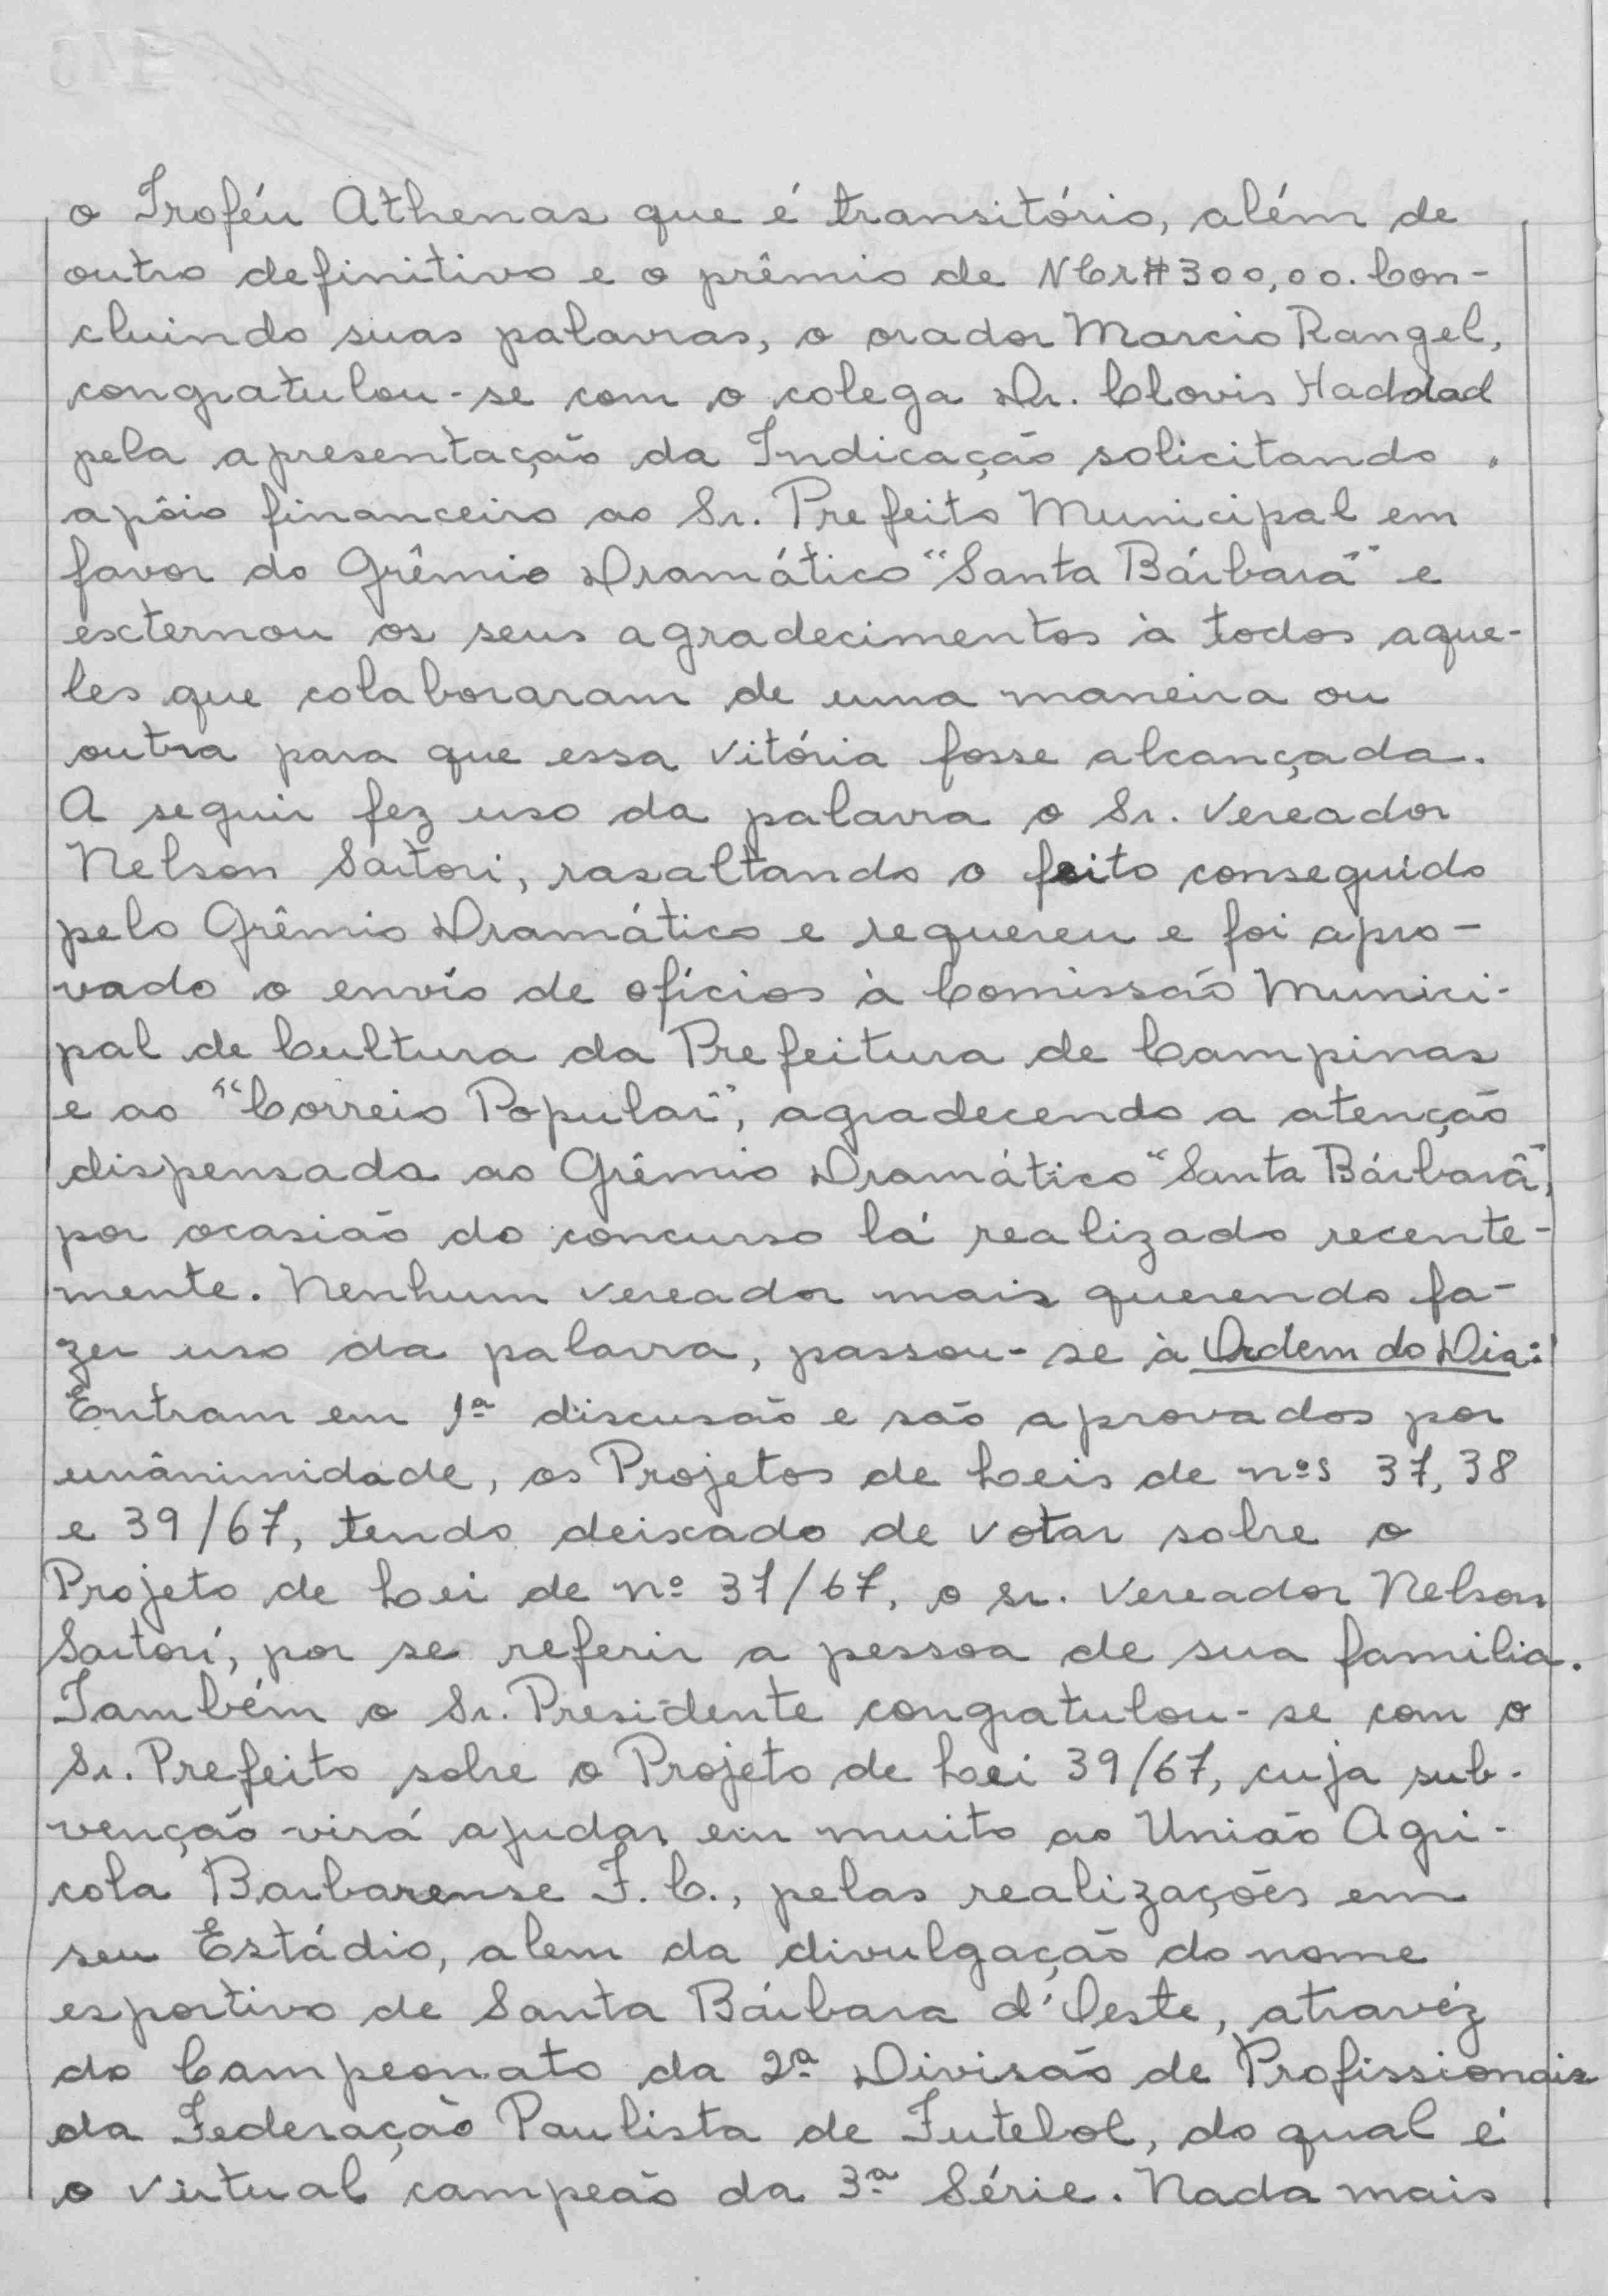 o Troféu Athenas que é transitório, além de
outro definitivo e o prêmio de NCr$300,00. Con-
cluindo suas palavras, o orador Marcio Rangel,
congratulou-se com o colega Dr. Clovis Haddad
pela apresentação da Indicação solicitando
apôio financeiro ao Sr. Prefeito Municipal em
favor do Grêmio Dramático "Santa Bárbara" e
externou os seus agradecimentos à todos aque-
les que colaboraram de uma maneira ou
outra para que essa vitória fosse alcançada.
A seguir fez uso da palavra o Sr. Vereador
Nelson Sartori, rasaltando o feito conseguido
pelo Grêmio Dramático e requereu e foi apro-
vado o envio de ofícios à Comissão Munici-
pal de Cultura da Prefeitura de Campinas
e ao "Correio Popular", agradecendo a atenção
dispensada ao Grêmio Dramático "Santa Bárbara",
por ocasião do concurso lá realizado recente-
mente. Nenhum vereador mais querendo fa-
zer uso da palavra, passou-se à Ordem do Dia:
Entram em 1ª discusão e são aprovados por
unânimidade, os Projetos de Leis de nºs 37, 38
e 39/67, tendo deixado de votar sobre o
Projeto de Lei de nº 37/67, o sr. Vereador Nelson
Sartori, por se referir a pessoa de sua familia.
Também o Sr. Presidente congratulou-se com o
Sr. Prefeito sobre o Projeto de Lei 39/67, cuja sub-
venção virá ajudar em muito ao União Agri-
cola Barbarense F.C., pelas realizações em
seu Estádio, alem da divulgação do nome
esportivo de Santa Bárbara d'Oeste, atravéz
do Campeonato da 2ª Divisão de Profissionais
da Federação Paulista de Futebol, do qual é
o virtual campeão da 3ª Série. Nada mais